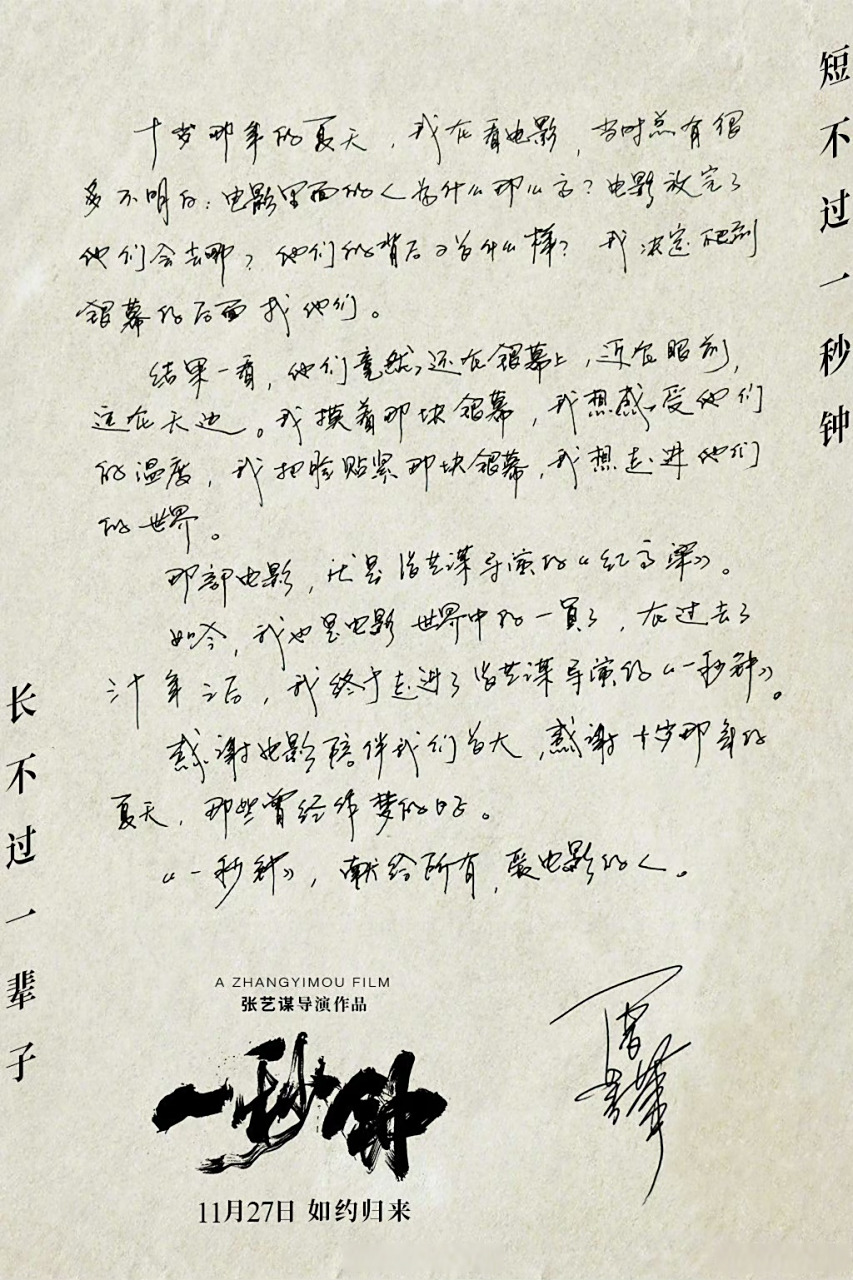 短不过一秒钟
十岁那年的夏天，我在看电影，当时总有很
多不明白：电影里面的人为什么那么高？电影放完了
他们会去哪？他们的背后又是什么样？我决定爬到
银幕的后面找他们。
结果一看，他们竟然还在银幕上，近在眼前，
远在天边。我摸着那块银幕，我想感受他们
的温度，我把脸贴紧那块银幕，我想走进他们
的世界。
那部电影，就是张艺谋导演的《红高粱》。
如今，我也是电影世界中的一員了，在过去了
三十年之后，我终于走进了张艺谋导演的《一秒钟》。
感谢电影陪伴我们长大，感谢十岁那年的
夏天，那些曾经作梦的日子。
《一秒钟》，献给所有，爱电影的人。
长不过一辈子
A ZHANGYIMOU FILM
张艺谋导演作品
一秒钟
11月27日 如约归来